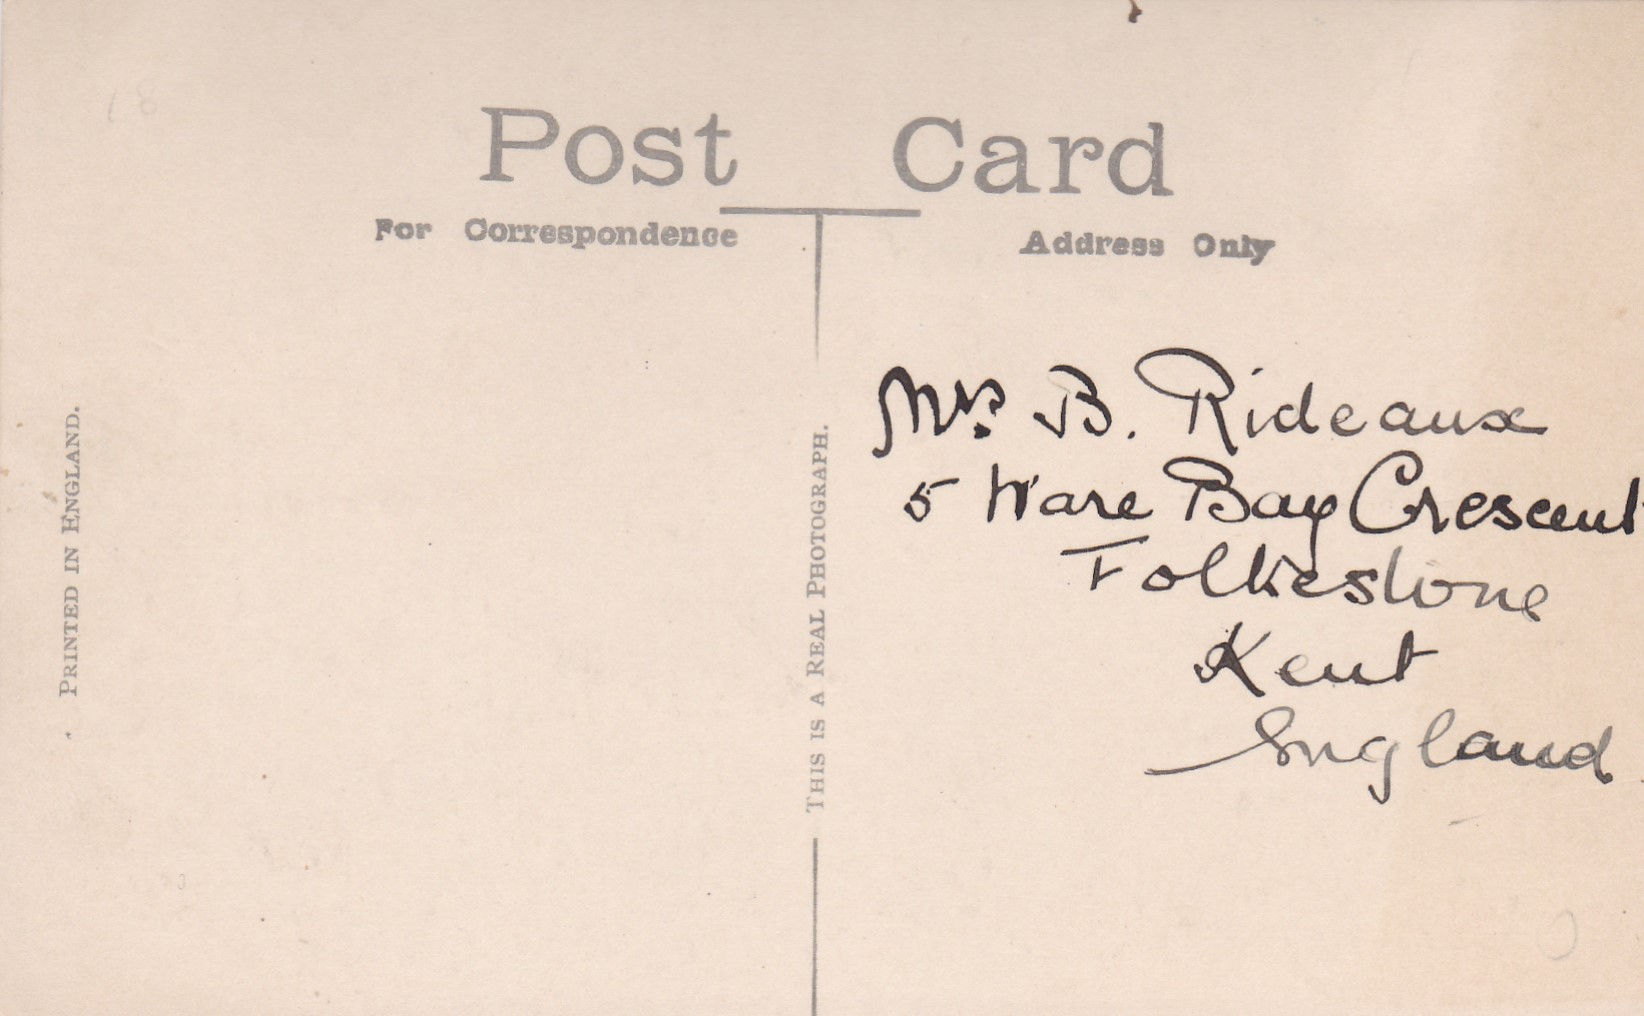 Post Card
For Correspondence
Address Only
PRINTED IN ENGLAND.
THIS IS A REAL PHOTOGRAPH.
Mrs B. Rideaux
5 Ware Bay Crescent
Folkestone
Kent
England